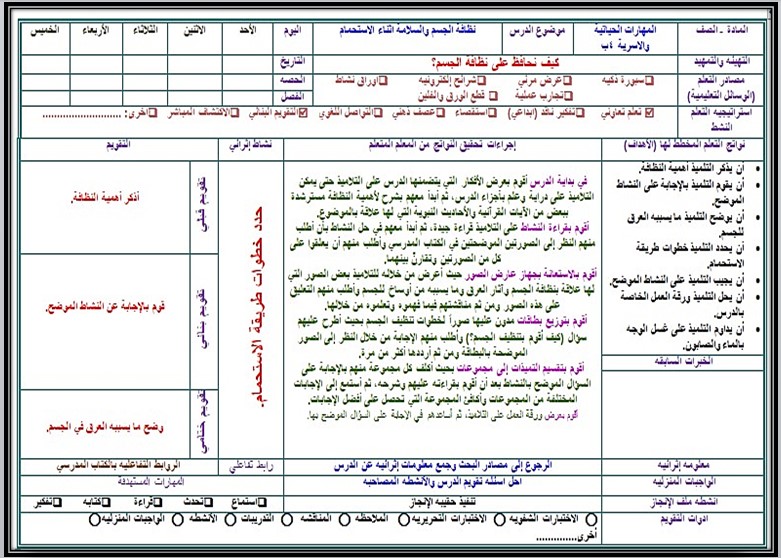 المادة ـ الصف
المهارات الحياتية والاسرية ٤ب
موضوع الدرس
نظافة الجسم والسلامة اثناء الاستحمام
اليوم
الأحد
الاثنين
الثلاثاء
الأربعاء
الخميس
التهيئه والتمهيد
كيف نحافظ على نظافة الجسم؟
التاريخ
مصادر التعلم (الوسائل التعليمية)
سبورة ذكيه عرض مرئي شرائح إلكترونيه اوراق نشاط
تجارب عملية قطع الورق والفلين
الحصه
الفصل
استراتيجيه التعلم النشط
تعلم تعاوني تفكير ناقد (ابداعي) استقصاء عصف ذهني التواصل اللغوي التقويم البنائي الاكتشاف المباشر اخرى: ..........................
نواتج التعلم المخطط لها (الأهداف)
إجراءات تحقيق النواتج من المعلم المتعلم
نشاط إثرائي
التقويم
أن يذكر التلميذ أهمية النظافة.
أن يقوم التلميذ بالإجابة على النشاط الموضح.
أن يوضح التلميذ ما يسببه العرق للجسم.
أن يحدد التلميذ خطوات طريقة الاستحمام.
أن يجيب التلميذ على النشاط الموضح.
أن يحل التلميذ ورقة العمل الخاصة بالدرس.
أن يداوم التلميذ على غسل الوجه بالماء والصابون.
الخبرات السابقه
في بداية الدرس أقوم بعرض الأفكار التي يتضمنها الدرس على التلاميذ حتى يمكن
التلاميذ على دراية وعلم بأجزاء الدرس، ثم أبدأ معهم بشرح لأهمية النظافة مسترشدة
ببعض من الآيات القرآنية والأحاديث النبوية التي لها علاقة بالموضوع.
أقوم بقراءة النشاط على التلاميذ قراءة جيدة، ثم أبدأ معهم في حل النشاط بأن أطلب
منهم النظر إلى الصورتين الموضحتين في الكتاب المدرسي وأطلب منهم أن يعلقوا على
كل من الصورتين وتقارن بينهما.
أقوم بالاستعانة بجهاز عارض الصور حيث أعرض من خلاله للتلاميذ بعض الصور التي
لها علاقة بنظافة الجسم وآثار العرق وما يسببه من أوساخ للجسم وأطلب منهم التعليق
على هذه الصور ومن ثم مناقشتهم فيما فهموه وتعلموه من خلالها.
أقوم بتوزيع بطاقات مدون عليها صوراً لخطوات تنظيف الجسم بحيث أطرح عليهم
سؤال (كيف أقوم بتنظيف الجسم؟) وأطلب منهم الإجابة من خلال النظر إلى الصور
الموضحة بالبطاقة ومن ثم أرددها أكثر من مرة.
أقوم بتقسيم التلميذات إلى مجموعات بحيث أكلف كل مجموعة منهم بالإجابة على
السؤال الموضح بالنشاط بعد أن أقوم بقراءته عليهم وشرحه، ثم أستمع إلى الإجابات
المختلفة من المجموعات وأكافئ المجموعة التي تحصل على أفضل الإجابات.
أقوم بعرض ورقة العمل على التلاميذ، ثم أساعدهم في الإجابة على السؤال الموضح بها.
حدد خطوات طريقة الاستحمام.
تقويم قبلي
أذكر أهمية النظافة.
تقويم بنائي
قوم بالإجابة عن النشاط الموضح.
تقويم ختامي
وضح ما يسببه العرق في الجسم.
معلومه إثرائيه
الرجوع إلى مصادر البحث وجمع معلومات إثرائيه عن الدرس
رابط تفاعلي
الروابط التفاعليه بالكتاب المدرسي
الواجبات المنزليه
احل اسئله تقويم الدرس والأنشطه المصاحبه
المهارات المستهدفة
انشطه ملف الإنجاز
تنفيذ حقيبه الإنجاز
استماع تحدث قراءة كتابه تفكير
ادوات التقويم
الاختبارات الشفويه الاختبارات التحريريه الملاحظه المناقشه التدريبات الأنشطه الواجبات المنزليه
أخرى..............